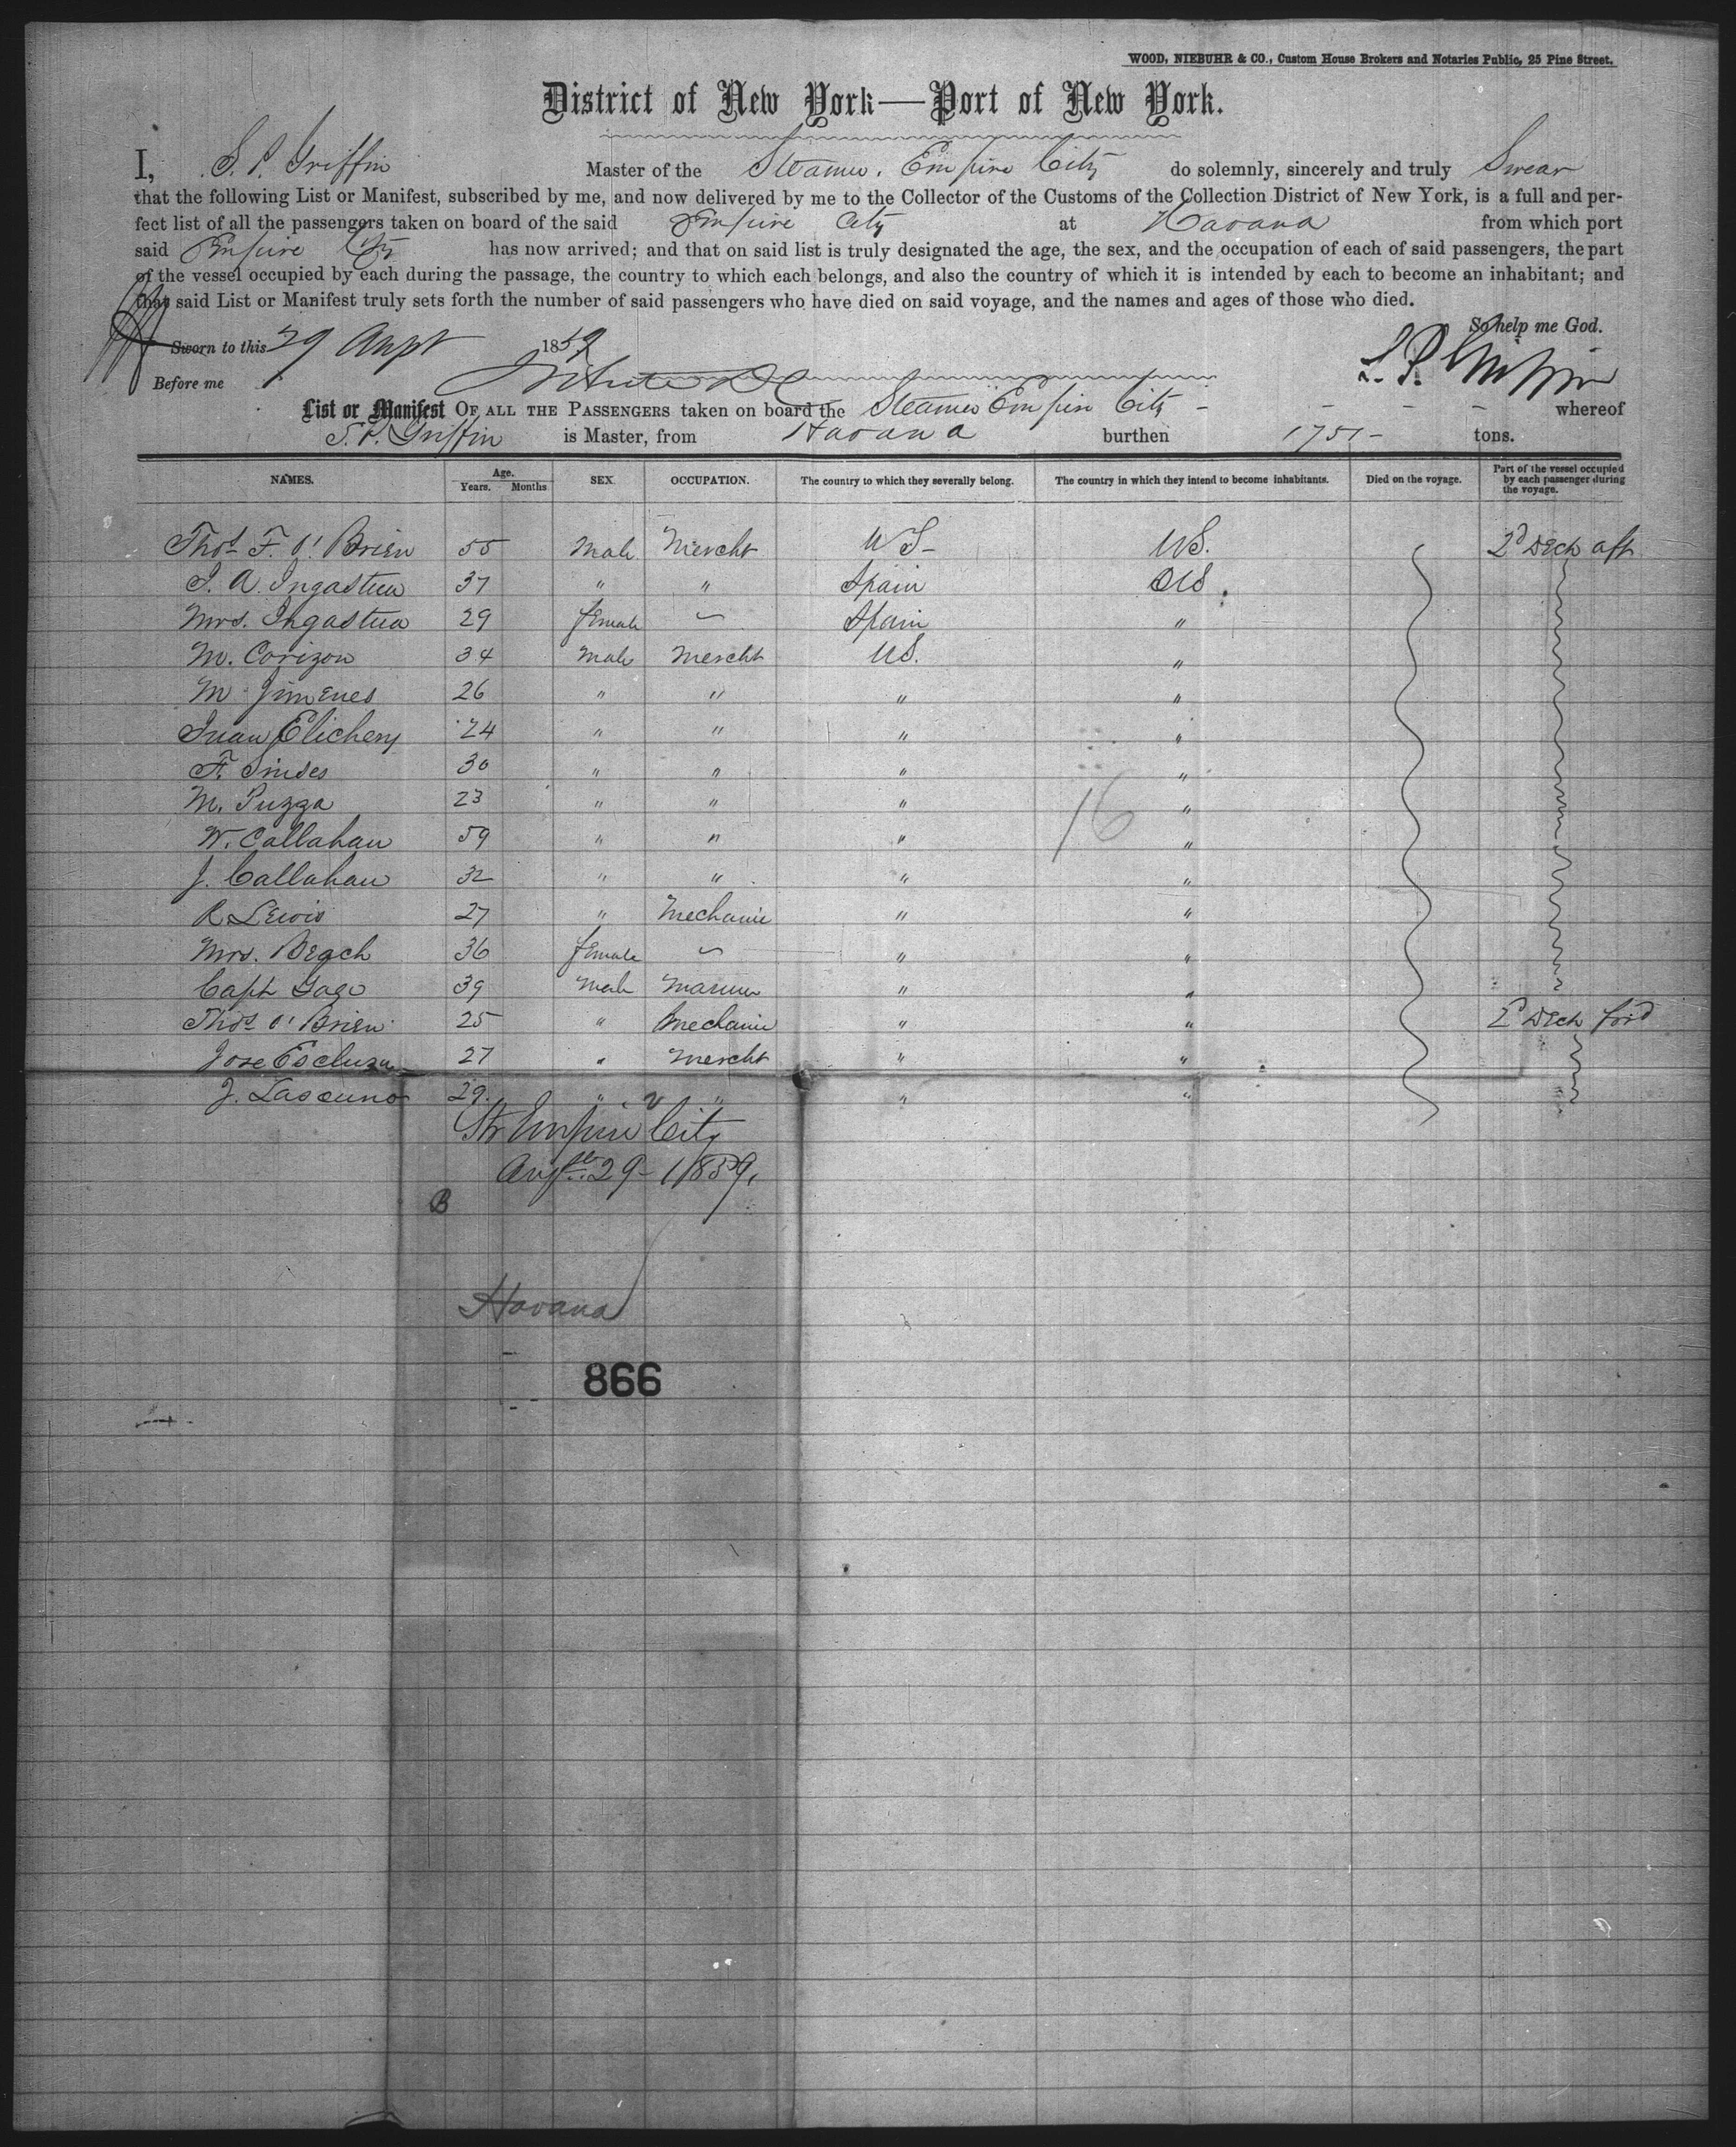 WOOD, NIEBUHR & CO., Custom House Brokers and Notaries Public, 25 Pine Street.
District of New York—Port of New York.
I, S. P. Griffin Master of the Steamer. Empire City do solemnly, sincerely and truly Swear
that the following List or Manifest, subscribed by me, and now delivered by me to the Collector of the Customs of the Collection District of New York, is a full and per-
fect list of all the passengers taken on board of the said Empire City at Havana from which port
said Empire City has now arrived; and that on said list is truly designated the age, the sex, and the occupation of each of said passengers, the part
of the vessel occupied by each during the passage, the country to which each belongs, and also the country of which it is intended by each to become an inhabitant; and
that said List or Manifest truly sets forth the number of said passengers who have died on said voyage, and the names and ages of those who died.
So help me God.
Sworn to this 29 Augt 1859
Before me S. P. Griffin
List or Manifest OF ALL THE PASSENGERS taken on board the Steamer Empire City - - - - - whereof
S. P. Griffin is Master, from Havana burthen 1751 - tons.
NAMES. Age. Years. Months SEX. OCCUPATION. The country to which they severally belong. The country in which they intend to become inhabitants. Died on the voyage. Part of the vessel occupied by each passenger during the voyage.
Thos. F. O'Brien 55 Male Mercht US- US. 2d Deck aft
J. A. Ingastua 37 " " Spain US.
Mrs. Ingastua 29 female ~ Spain "
M. Corizon 34 Male Mercht US. "
M. Jimenes 26 " " " "
Juan Elichery 24 " " " "
F. 30 " " " "
M. Puzza 23 " " " "
W. Callahan 59 " " " "
J. Callahan 32 " " " "
R. Lewis 27 " Mechanic " "
Mrs. Beach 36 female ~ " "
Capt Gage 39 Male Mariner " "
Thos. O'Brien 25 " Mechanic " " 2d Deck for'd
Jose 27 " Mercht " "
J. 29. " " " "
16
Str Empire City
Augst 29 - 1859.
B
Havana
866